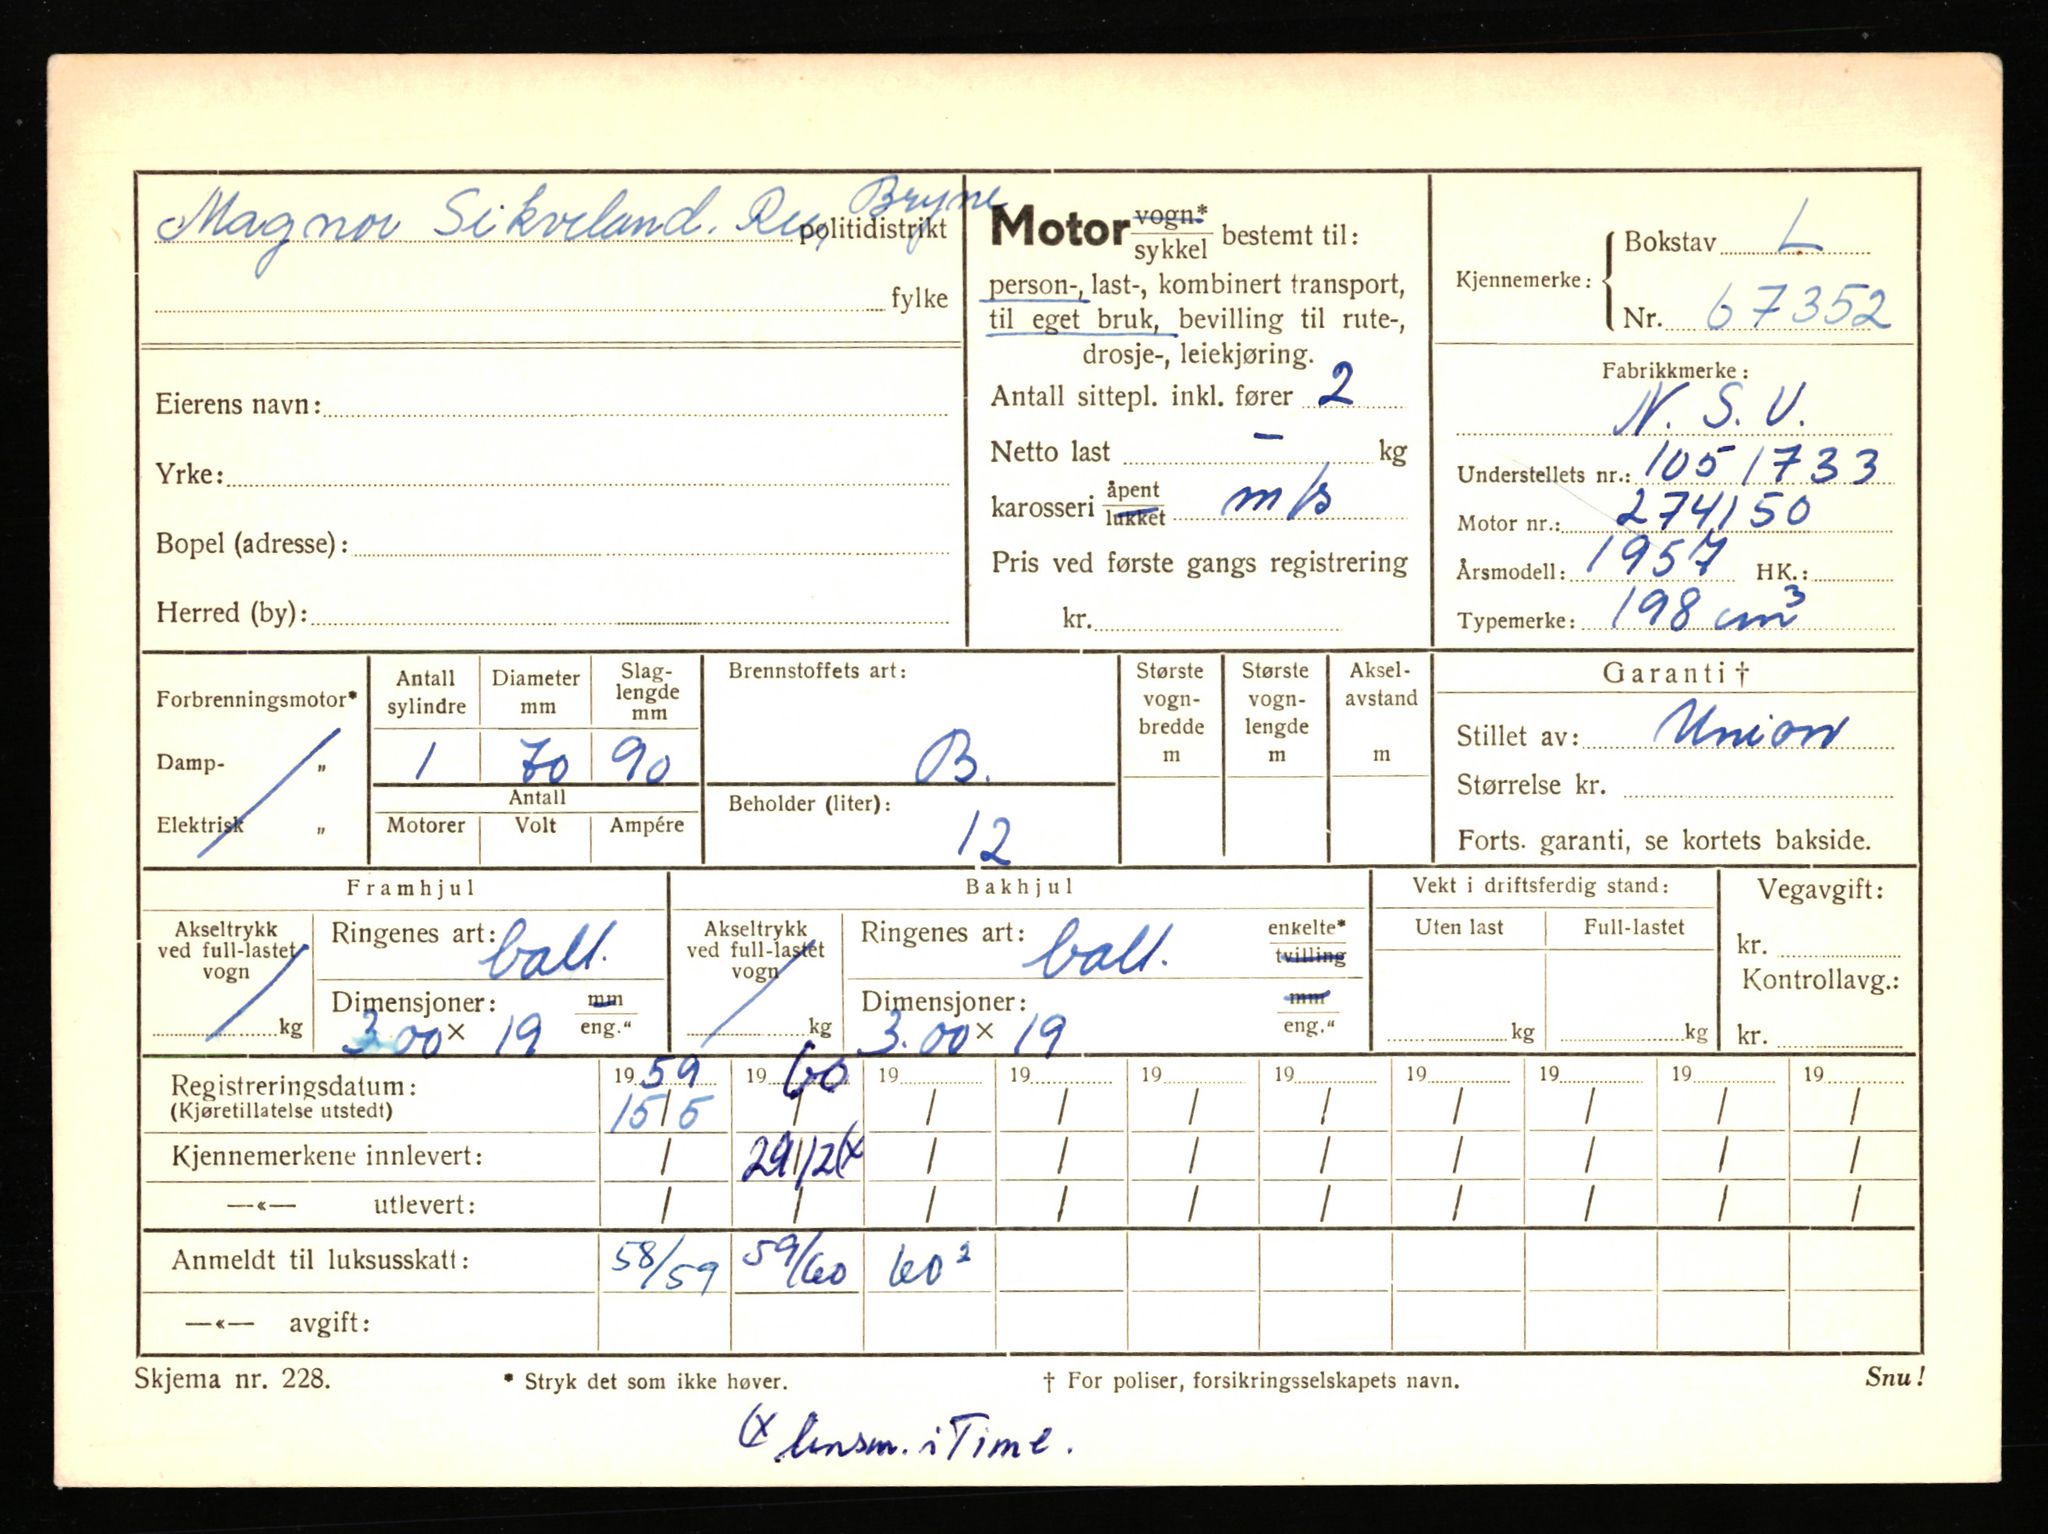 Magnor Sikveland. Re, Bryne politidistrikt
fylke
Eierens navn:
Yrke:
Bopel (adresse):
Herred (by):
Motor vogn* sykkel bestemt til:
person-, last-, kombinert transport,
til eget bruk, bevilling til rute-,
drosje-, leiekjøring.
Antall sittepl. inkl. fører 2
Netto last – kg
karosseri åpent lukket m/s
Pris ved første gangs registrering
kr.
Kjennemerke: Bokstav L
Nr. 67352
Fabrikkmerke:
N. S. U.
Understellets nr.: 1051733
Motor nr.: 274150
Årsmodell: 1957 HK.:
Typemerke: 198 cm³
Forbrenningsmotor*
Damp- „
Elektrisk „
Antall sylindre 1
Diameter mm 70
Slag-lengde mm 90
Antall
Motorer Volt Ampére
Brennstoffets art:
B.
Beholder (liter):
12
Største vogn-bredde m
Største vogn-lengde m
Aksel-avstand m
Garanti †
Stillet av: Union
Størrelse kr.
Forts. garanti, se kortets bakside.
Framhjul
Akseltrykk ved full-lastet vogn kg
Ringenes art: ball.
Dimensjoner: mm eng."
3.00 × 19
Bakhjul
Akseltrykk ved full-lastet vogn kg
Ringenes art: ball. enkelte* tvilling
Dimensjoner: mm eng."
3.00 × 19
Vekt i driftsferdig stand:
Uten last Full-lastet
kg kg
Vegavgift:
kr.
Kontrollavg.:
kr.
Registreringsdatum: 1959 1960 19 19 19 19 19 19 19 19
(Kjøretillatelse utstedt) 15/5 / / / / / / / / /
Kjennemerkene innlevert: / 29/12 (x / / / / / / / /
—«— utlevert: / / / / / / / / / /
Anmeldt til luksusskatt: 58/59 59/60 60²
—«— avgift:
Skjema nr. 228. * Stryk det som ikke høver. † For poliser, forsikringsselskapets navn. Snu!
(x lensm. i Time.